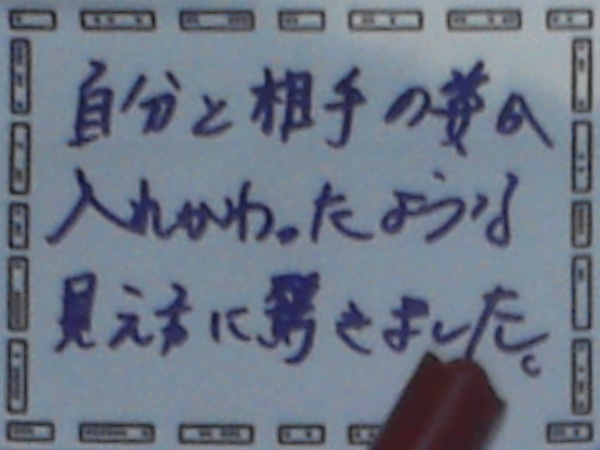 自分と相手の姿が
入れかわったような
見え方に驚きました。